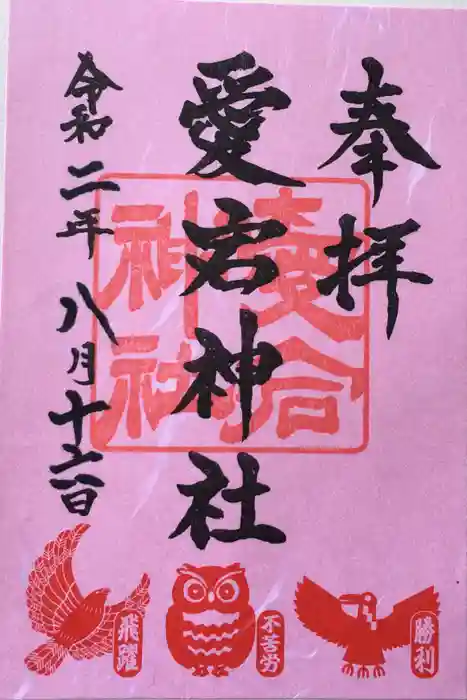 奉拝
愛宕神社
愛宕
神社
令和二年八月十六日
勝利
不苦労
飛躍